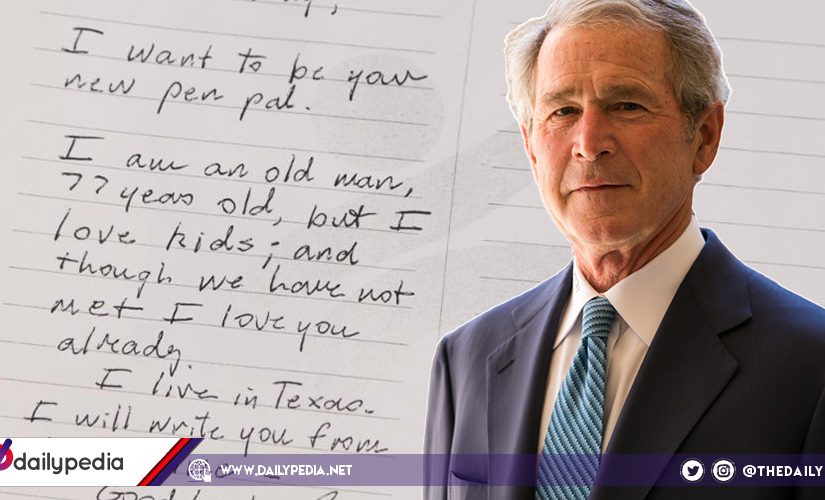 I want to be your
new pen pal.
I am an old man,
77 yeas old, but I
love kids; and
though we have not
met I love you
already.
I live in Texas-
I will write you from
dailypedia
WWW.DAILYPEDIA.NET
@THEDAILY